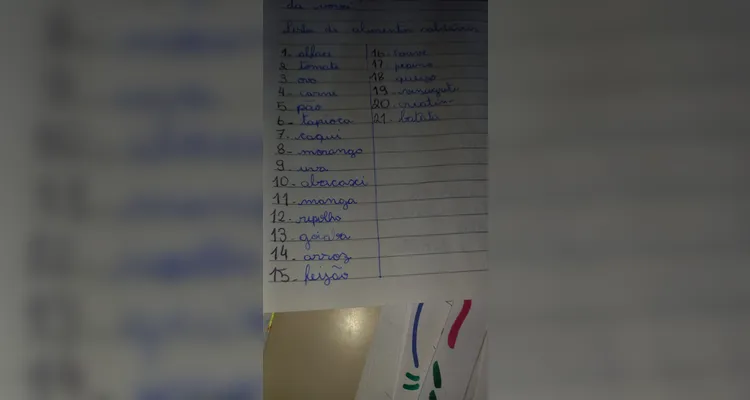 da
Lista de alimentos
1. alface
2. tomate
3. ovo
4. carne
5. pão
6. tapioca
7. caqui
8. morango
9. uva
10. abacaxi
11. manga
12. repolho
13. goiaba
14. arroz
15. feijão
16. couve
17
18 queijo
19
20
21. batata